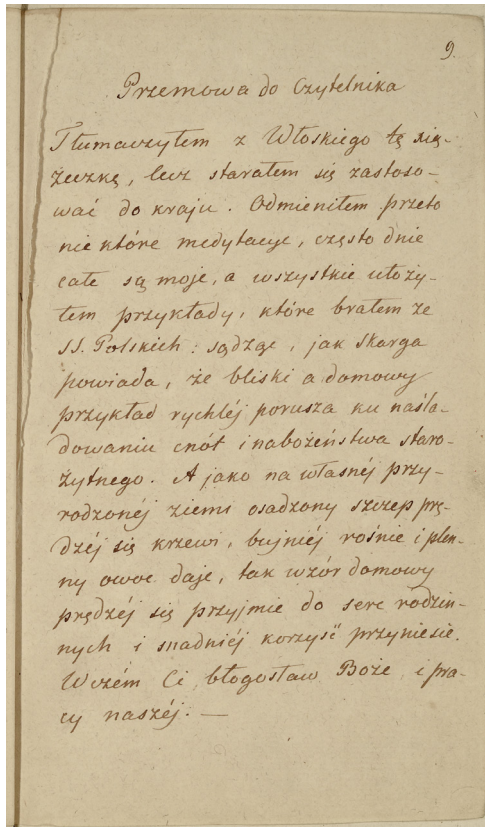 9.
Przemowa do Czytelnika
Tłumaczyłem z Włoskiego tę xią-
żeczkę, lecz starałem się zastoso-
wać do kraju. Odmieniłem przeto
nie które medytacye, często dnie
całe są moje, a wszystkie ułoży-
łem przykłady, które brałem ze
SS. Polskich: sądząc, jak Skarga
powiada, że bliski a domowy
przykład rychléj porusza ku naśla-
dowaniu cnót i nabożeństwa staro-
żytnego. A jako na własnéj przy-
rodzonéj ziemi osadzony szczep prę-
dzéj się krzewi, bujniéj rośnie i plen-
ny owoc daje, tak wzór domowy
prędzéj się przyjmie do serc rodzin-
nych i snadniéj korzyść przyniesie.
Wczém Ci błogosław Boże i pra-
cy naszéj. —